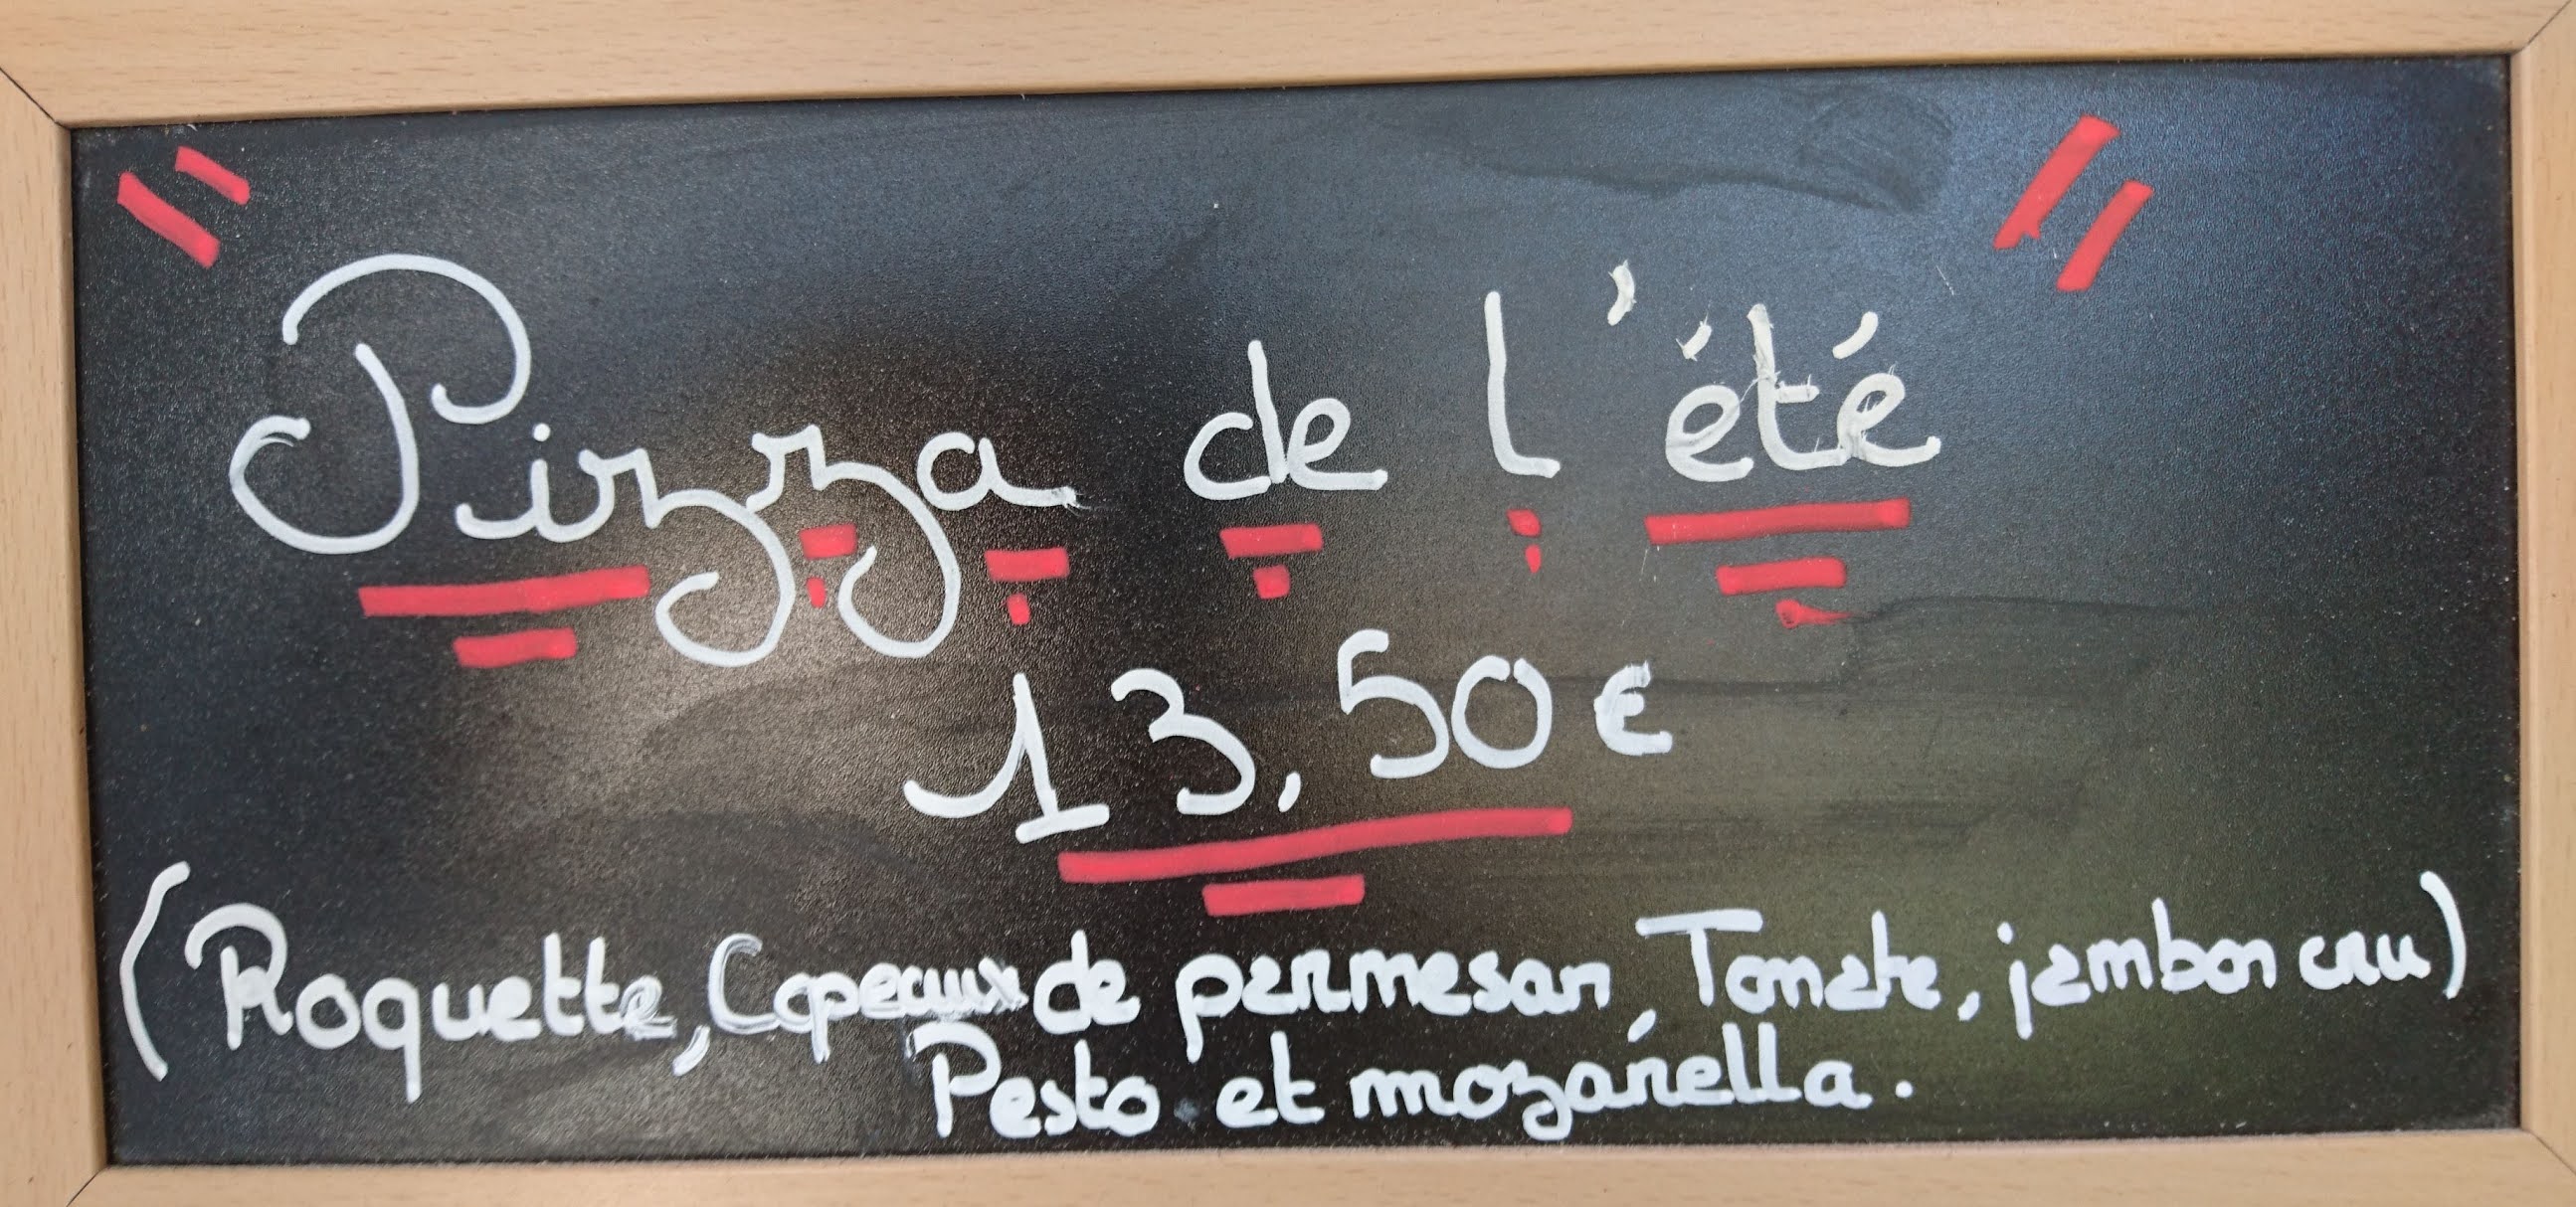 Pizza de l'été
13,50€
(Roquette, Copeaux de parmesan, Tomate, jambon cru)
Pesto et mozarella.